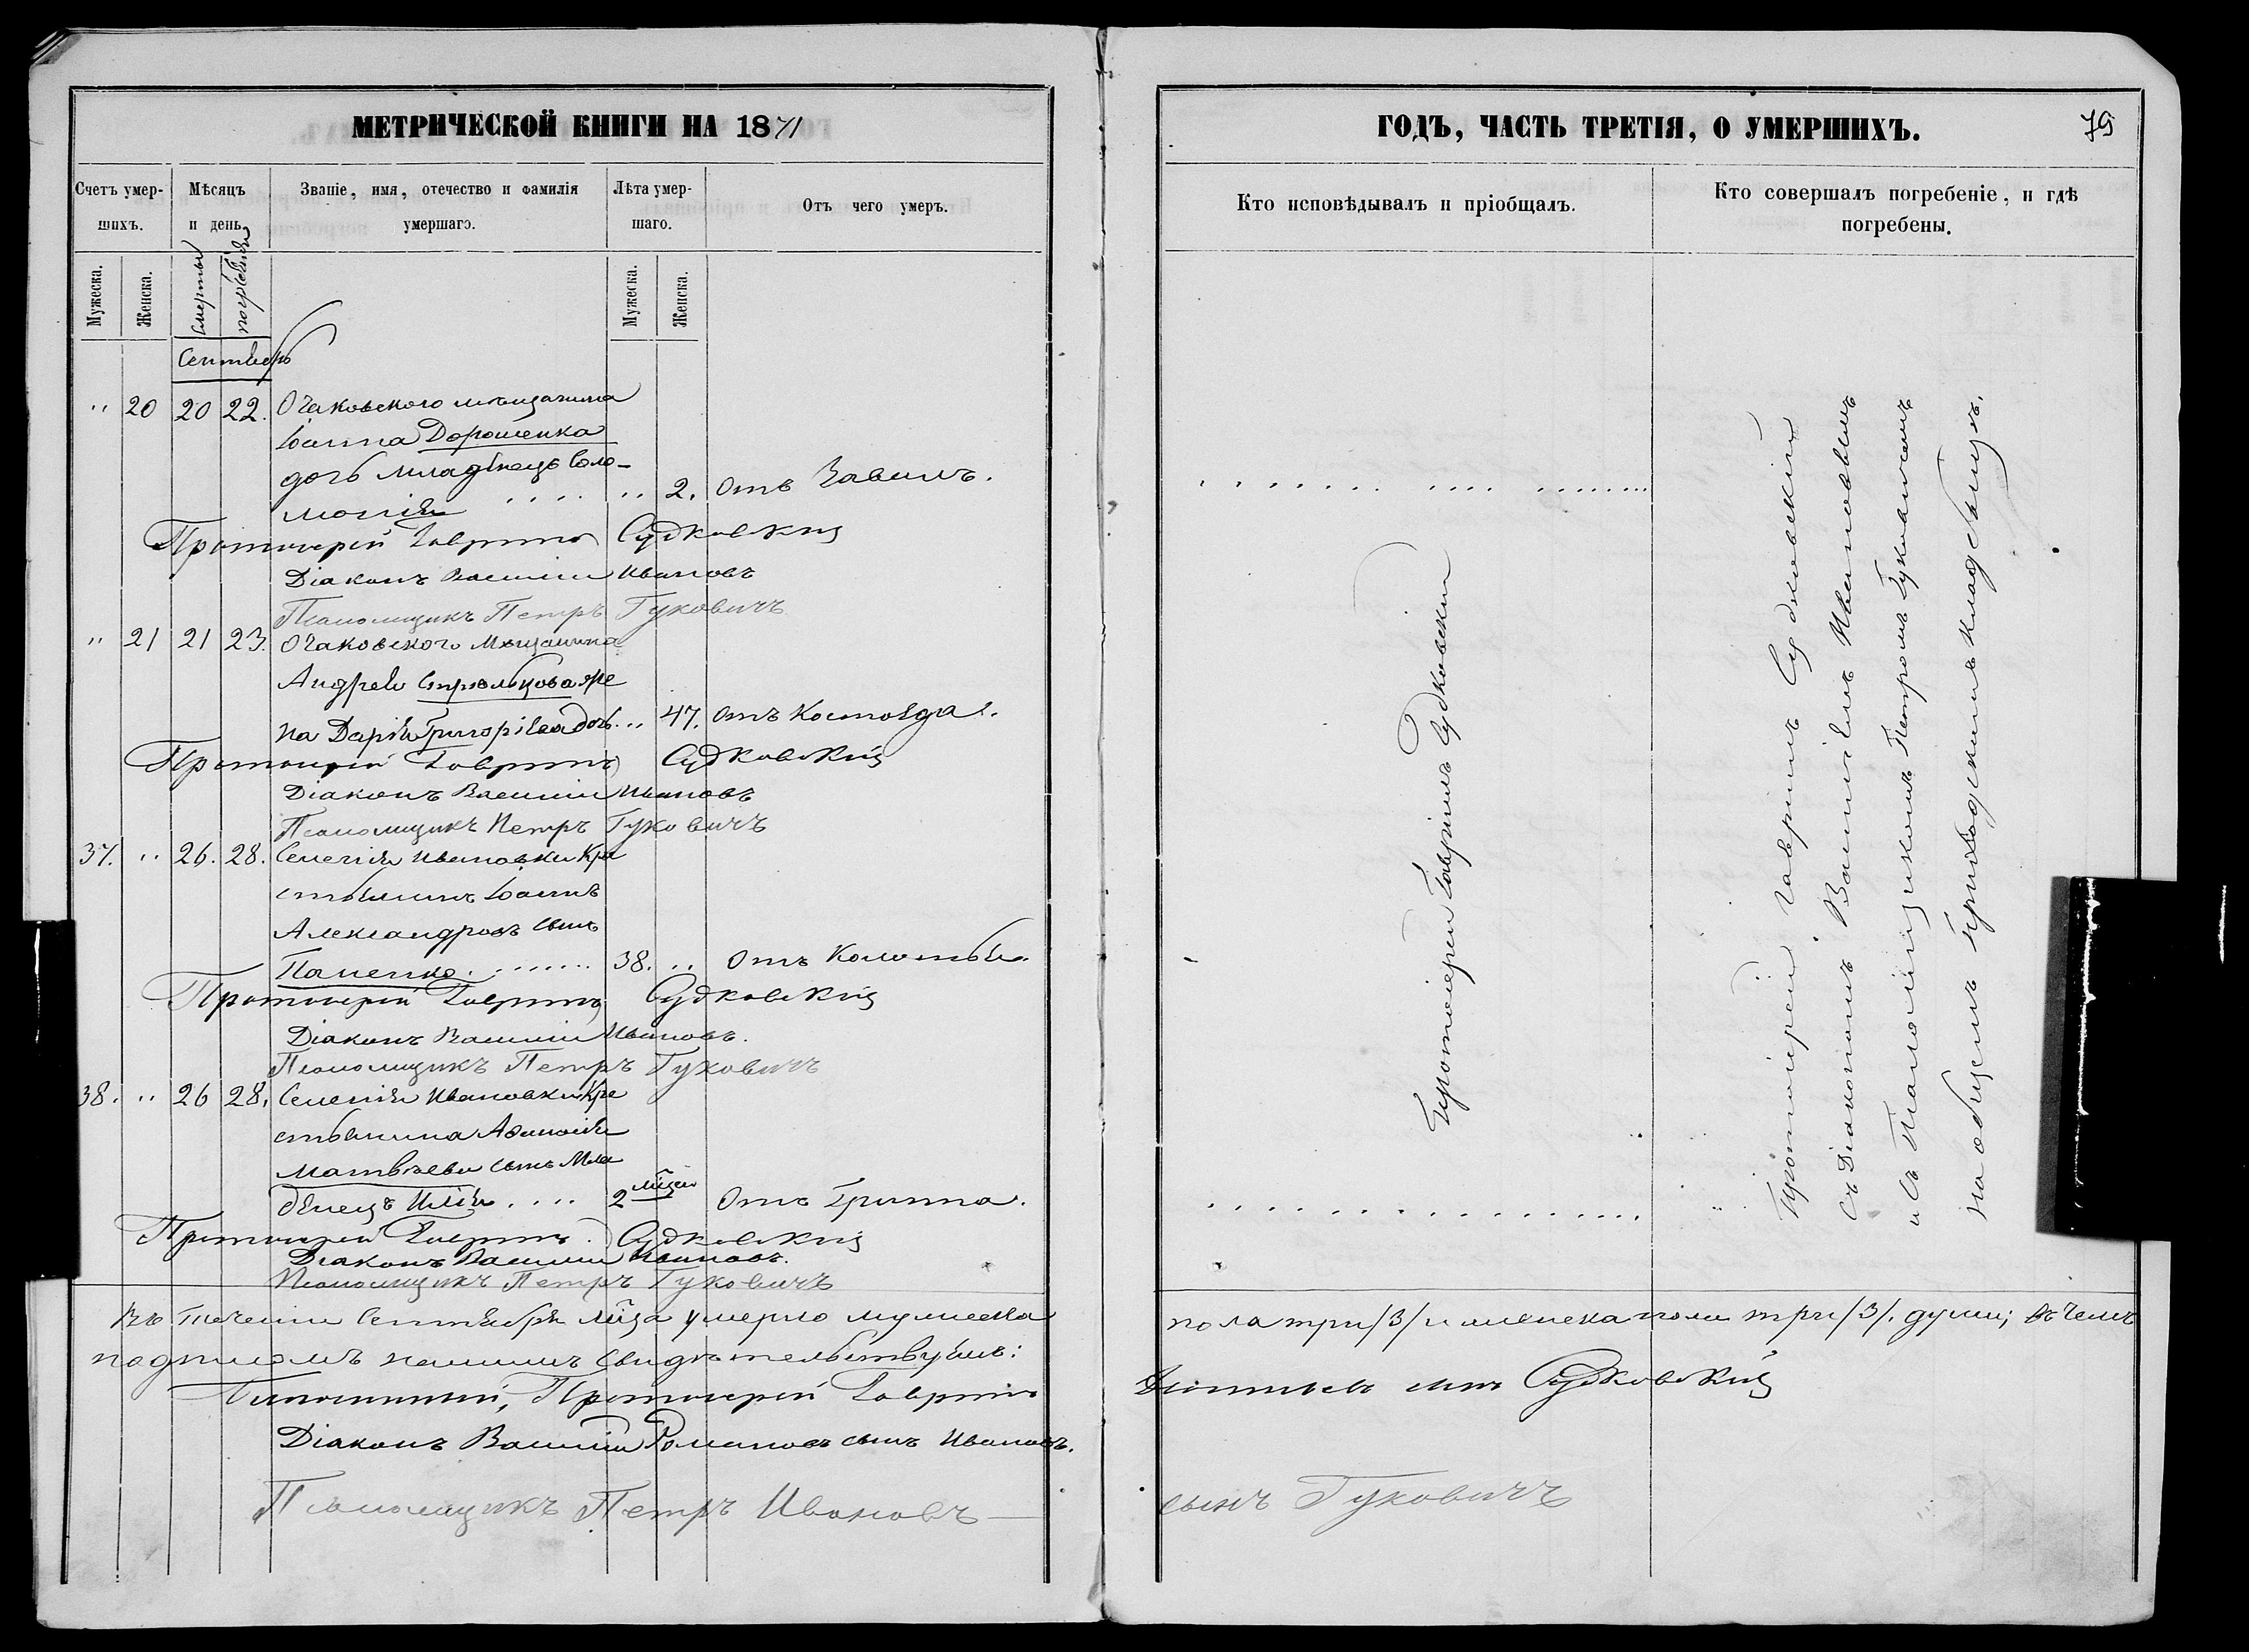 МЕТРИЧЕСКОЙ КНИГИ НА 1871
Счетъ умершихъ.
Мѣсяцъ и день.
Званіе, имя, отечество и фамилія умершаго.
Лѣта умершаго.
Отъ чего умеръ.
Мужеска.
Женска.
смерти
погребенія
Мужеска.
Женска.
Сентябрь
" 20 20 22. Очаковского мѣщанина
Іоанна Дорошенка
дочь младенецъ Соло-
монія .... " 2. Отъ
Протоиерей Гавріилъ Судковскій
Діаконъ Василій Ивановъ
Псаломщикъ Петръ Гуковичъ
" 21 21 23. Очаковского Мѣщанина
Андрея Стрѣльцова же
на Дарія Григоріева дочь. " 47. отъ
Протоиерей Гавріилъ Судковскій
Діаконъ Василій Ивановъ
Псаломщикъ Петръ Гуковичъ
37. " 26. 28. Селенія Ивановки Кре
стьянинъ Іоаннъ
Александровъ сынъ
....... 38. " Отъ
Протоиерей Гавріилъ Судковскій
Діаконъ Василій Ивановъ.
Псаломщикъ Петръ Гуковичъ
38. " 26 28. Селенія Ивановки Кре
стьянина
Матвѣева сынъ Мла
денецъ Илія .... 2 мѣсяц. Отъ Гриппа.
Протоиерей Гавріилъ Судковскій
Діаконъ Василій Ивановъ.
Псаломщикъ Петръ Гуковичъ
Въ теченіи Сентября мѣсяца умерло мужеска
подписомъ нашимъ свидѣтельствуемъ:
Протоиерей Гавріилъ
Діаконъ Василій Романовъ сынъ Ивановъ.
Псаломщикъ Петръ Ивановъ
ГОДЪ, ЧАСТЬ ТРЕТІЯ, О УМЕРШИХЪ.
79
Кто исповѣдывалъ и пріобщалъ.
Кто совершалъ погребеніе, и гдѣ погребены.
Протоіерей Гавріилъ Судковскій
Протоіерей Гавріилъ Судковскій
съ Діакономъ Василіемъ Ивановымъ
и съ Псаломщикомъ Петромъ Гуковичемъ
на общемъ приходскомъ кладбищѣ.
пола три /3/ и женска пола три /3/. души; въ чемъ
сынъ Судковскій
сынъ Гуковичъ